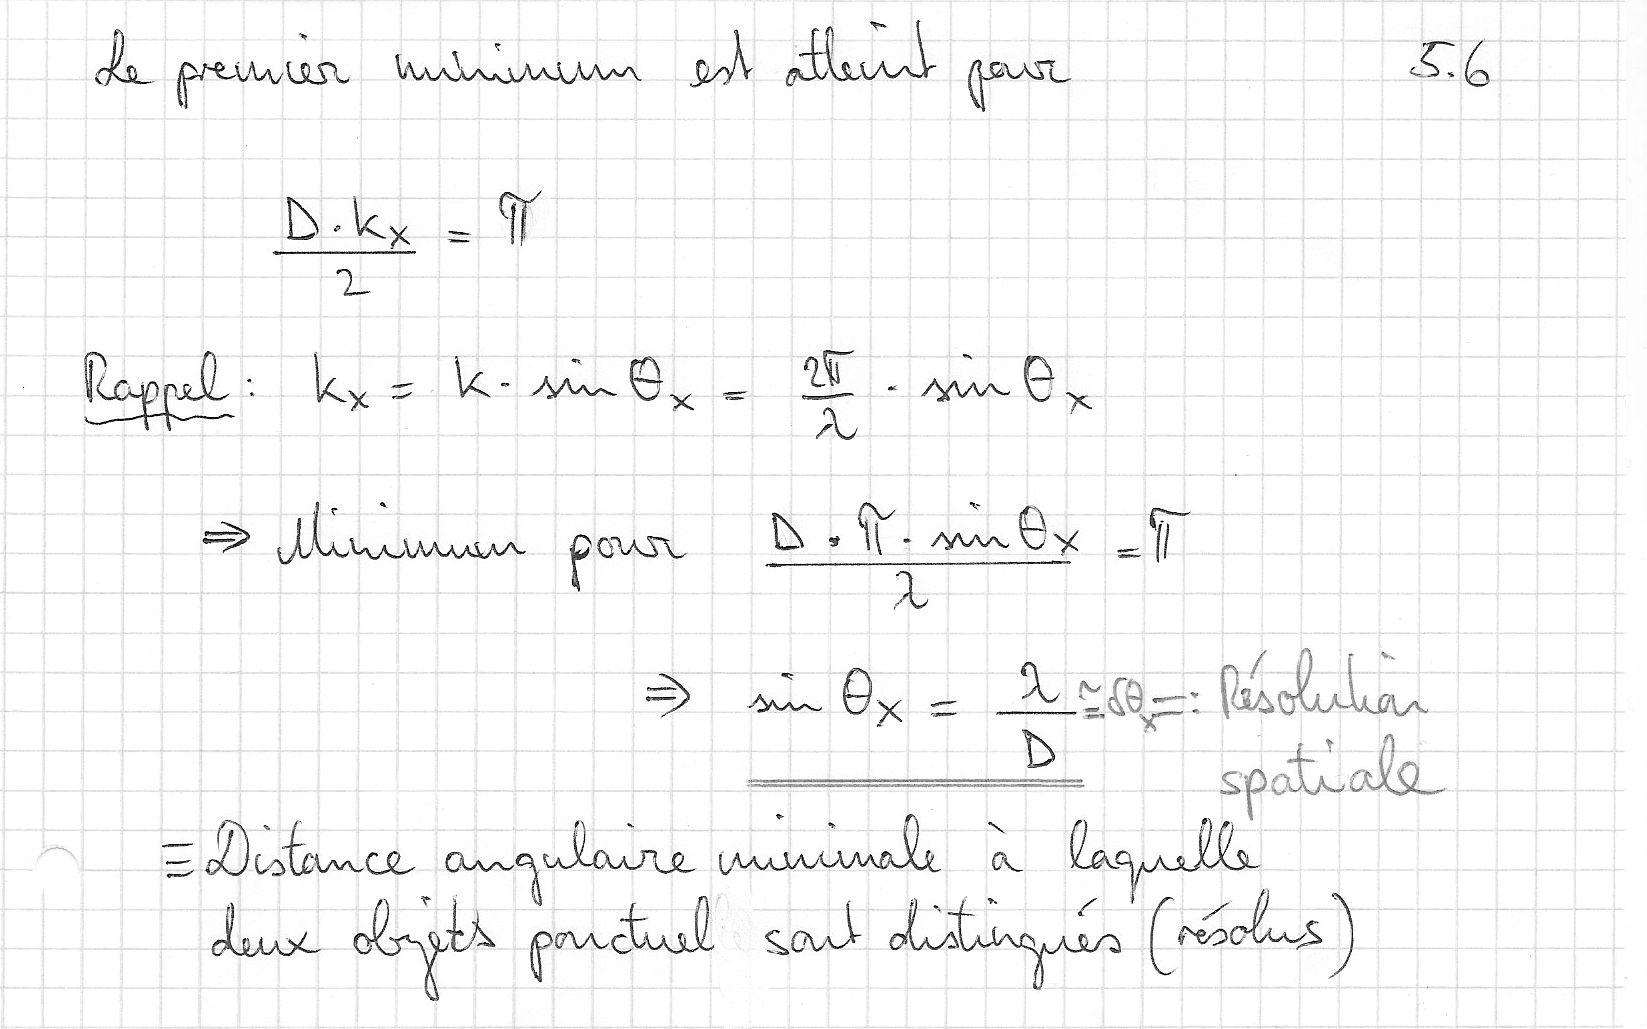 Le premier minimum est atteint pour 5.6
D·kx / 2 = π
Rappel : kx = k · sin θx = 2π/λ · sin θx
⇒ Minimum pour D·π·sin θx / λ = π
⇒ sin θx = λ/D ≅ δθx =: Résolution
spatiale
≡ Distance angulaire minimale à laquelle
deux objets ponctuel sont distingués (résolus)